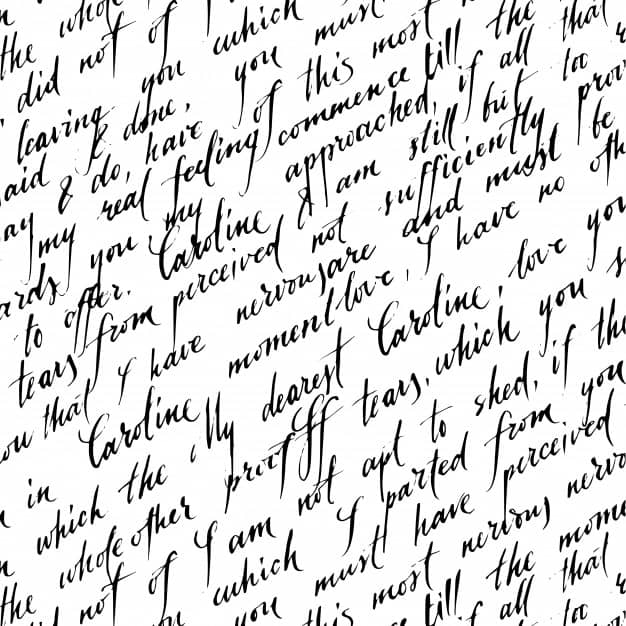 the whole
did not of
leaving you which
said & done, you must
say & do, have of this most
my real feeling commence till the
you my approached, if all that
to offer. Caroline I am still but too
tears from perceived not sufficiently
you that I have nervous are and must be
moment love, I have no
Caroline My dearest Caroline, love you
in which the proof off tears, which you
the whole other not apt to shed, if the
not of I am I parted from you
you which must have perceived
you this most nervous
till the
if all that